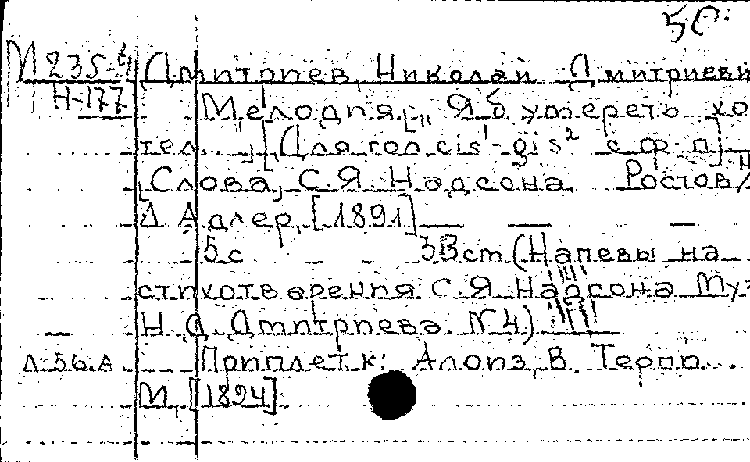 50.
М 235-4 Дмитриев, Николай Дмитриеви
Н-177 Мелодия. „Я б умереть хо
тел..." [Для гол. cis¹-gis² с ф-п]
Слова С.Я. Надсона. Ростов/Н
Д. Адлер, [1891]
5 с. 3Вст (Напевы на
стихотворения С.Я. Надсона Муз
Н.Д. Дмитриева. N 4)
Л.56.А Приплет к: Алоиз, В.
М. [1894]